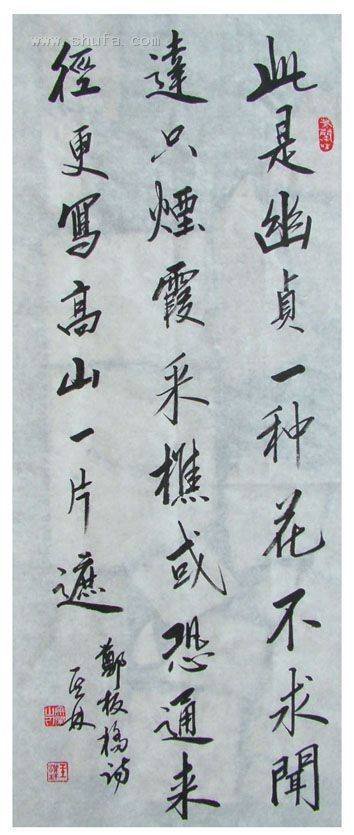 www.shufa.com
此是幽貞一种花不求聞
達只煙霞采樵或恐通来
徑更寫高山一片遮
鄭板橋詩